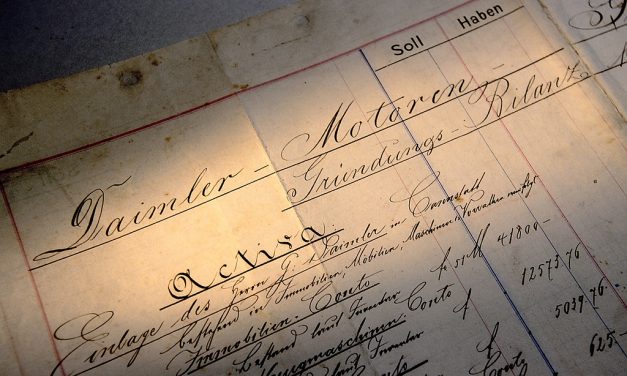 Soll Haben
Daimler - Motoren -
Gründungs - Bilanz
Activa.
Einlage des Herrn G. Daimler in Cannstatt
bestehend in Immobilien, Mobilien, Maschinen &
Immobilien - Conto 41800 -
Bestand laut Inventar
Conto 12573.76
laut Inventar
5039.76
Conto 625 -